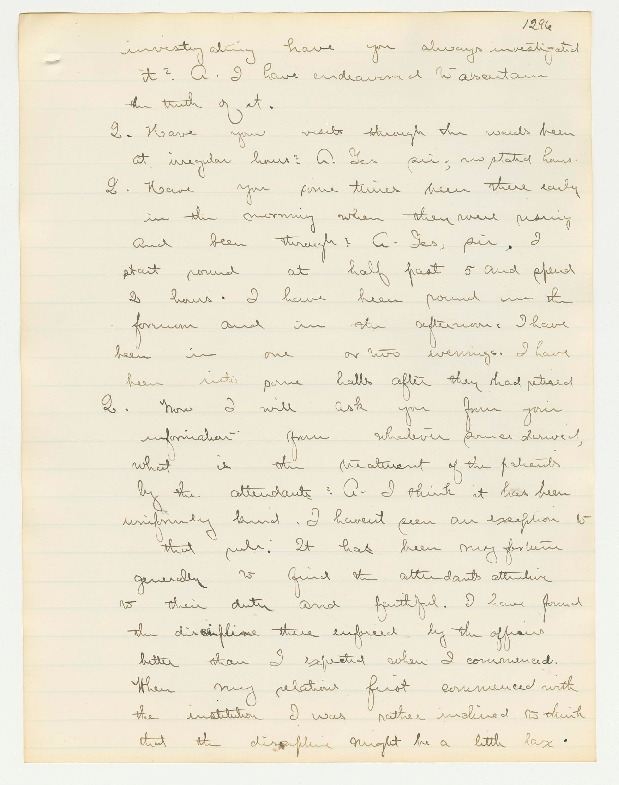 1296
investigating have you always investigated
it? A. I have endeavored to ascertain
the truth of it.
Q. Have your visits through the wards been
at irregular hours? A. Yes sir, no stated hours.
Q. Have you some times been there early
in the morning when they were rising
and been through? A. Yes, sir. I
start round at half past 5 and spend
2 hours. I have been round in the
forenoon and in the afternoon. I have
been in one or two evenings. I have
been into some halls after they had retired
Q. Now I will ask you from your
information from whatever source derived,
what is the treatment of the patients
by the attendants? A. I think it has been
uniformly kind. I havent seen an exception to
that rule. It has been my fortune
generally to find the attendants attentive
to their duty and faithful. I have found
the discipline there enforced by the officers
better than I expected when I commenced.
When my relations first commenced with
the institution I was rather inclined to think
that the discipline might be a little lax.